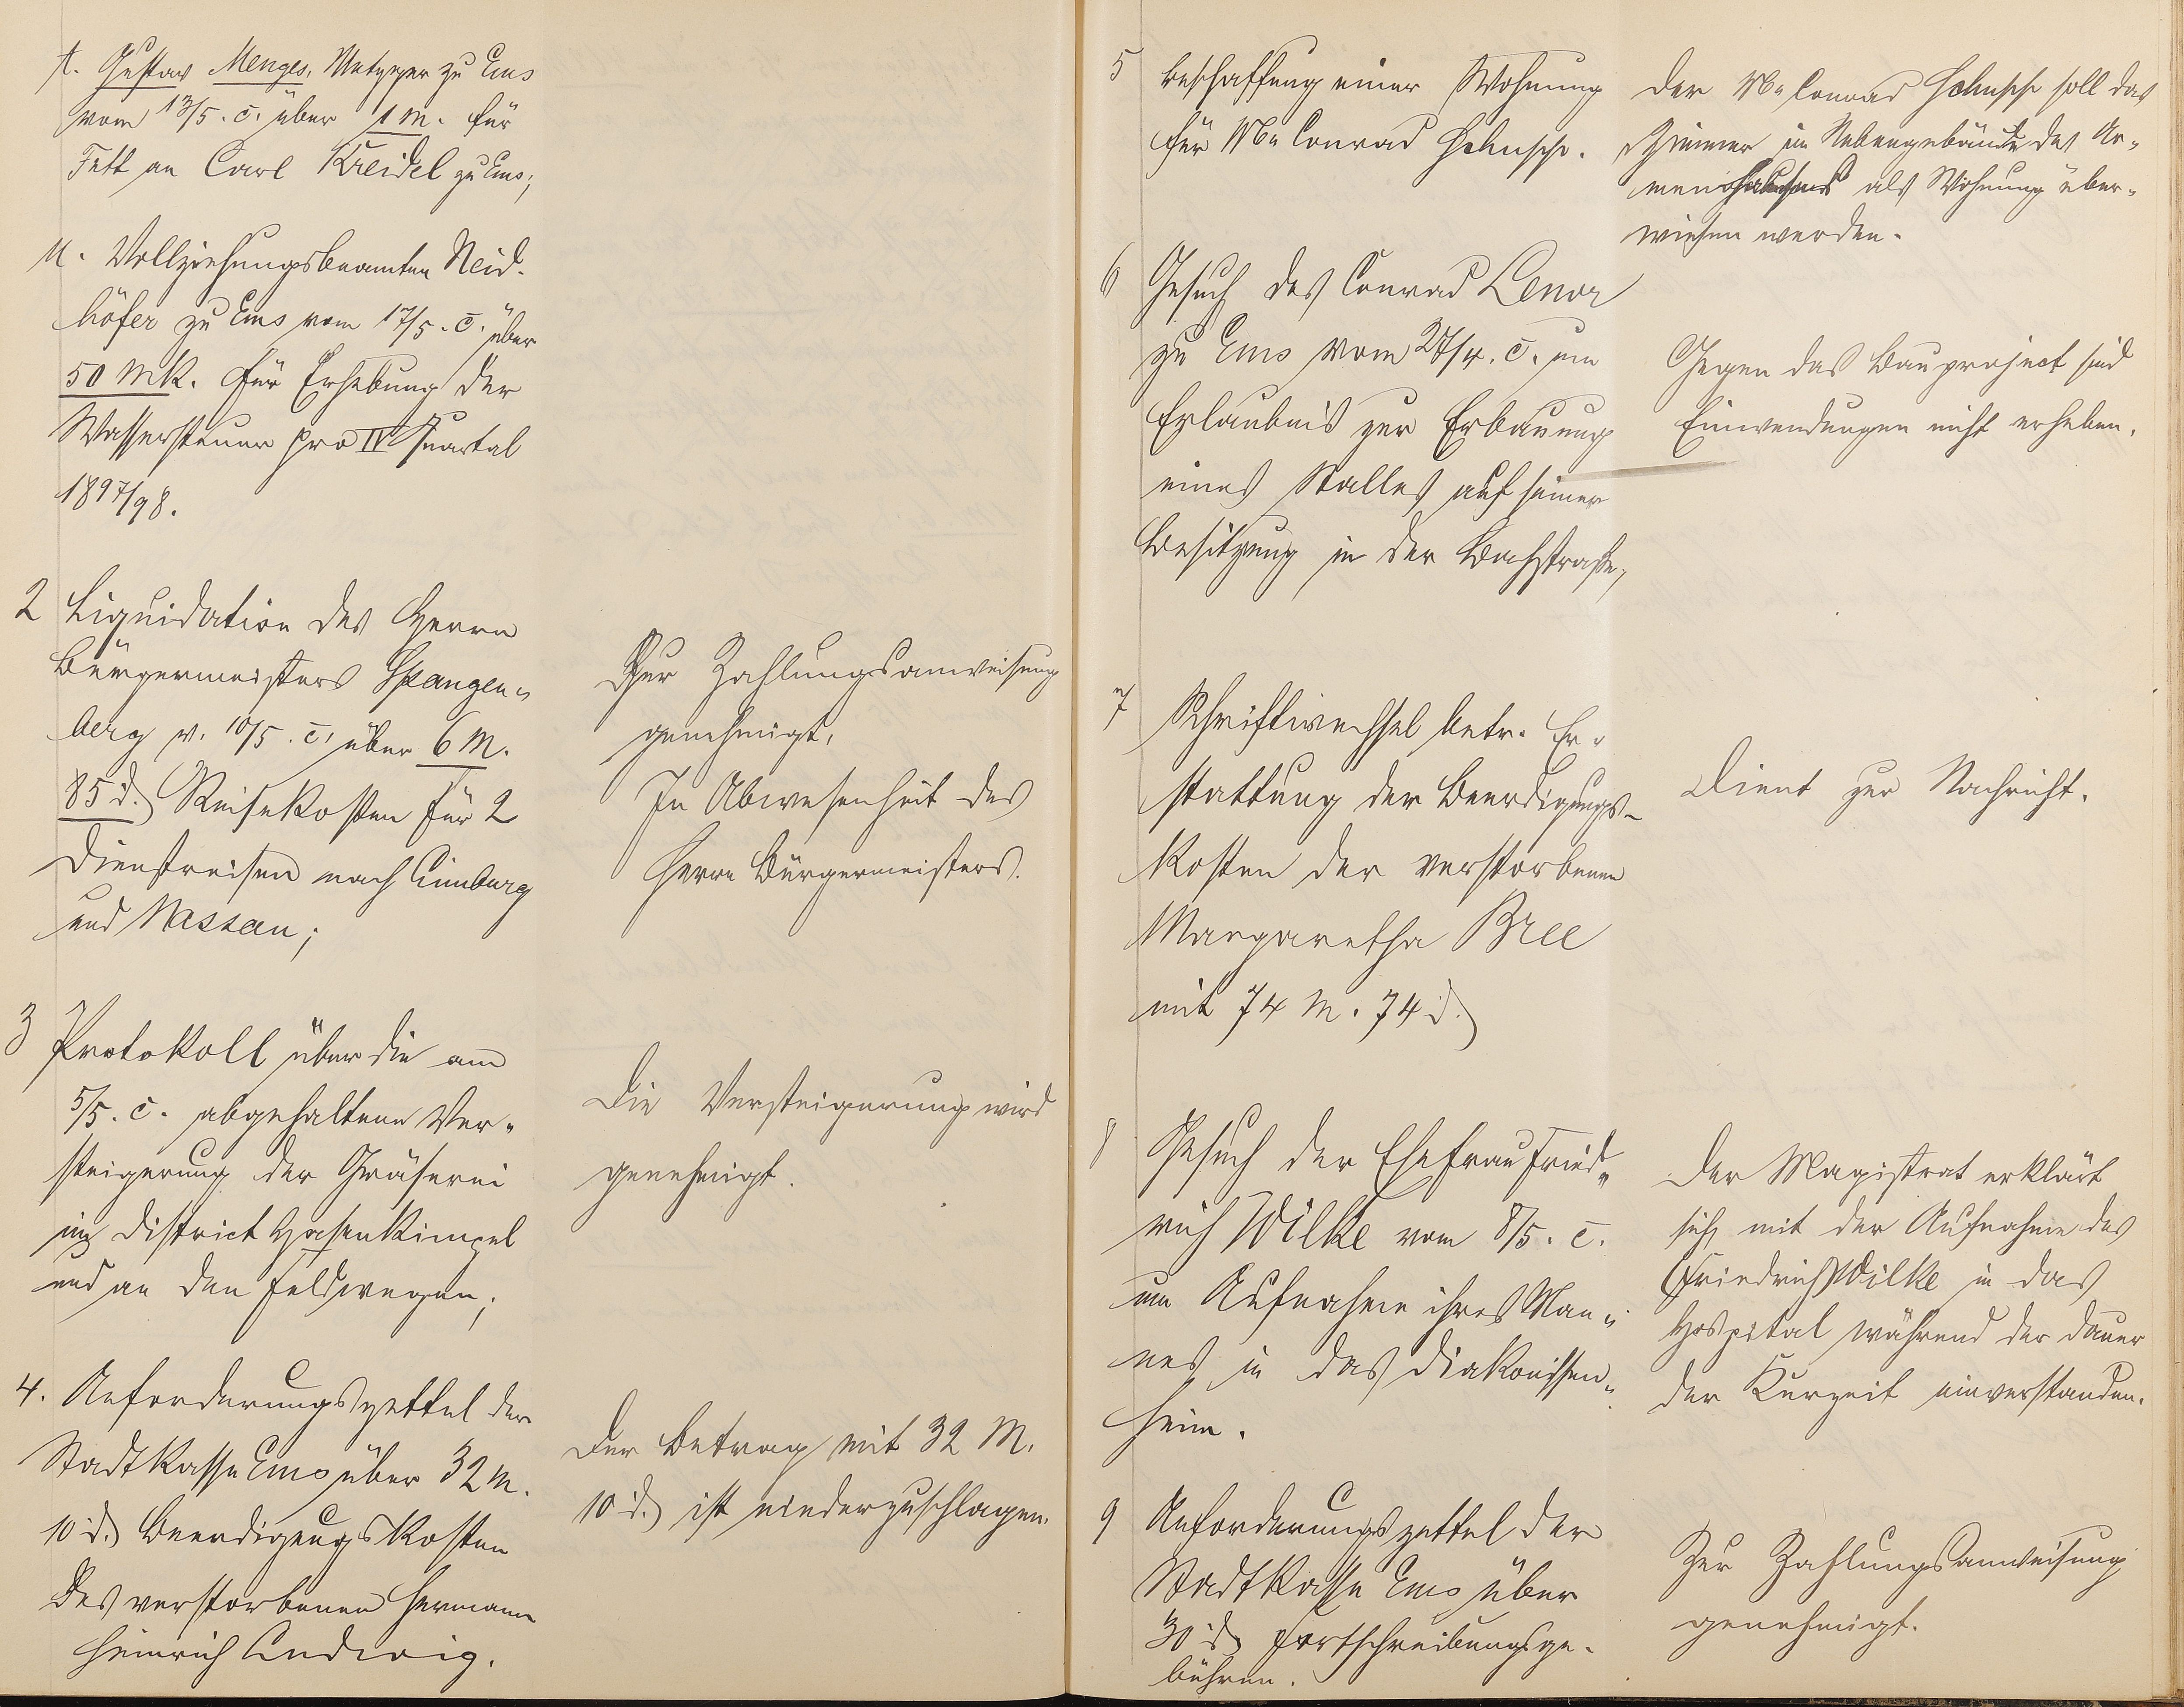 t. Gustav Menges, Metzger zu Ems
vom 13/5. c. über 1 M. für
Fett an Carl Kreidel zu Ems;
u. Vollziehungsbeamten Neid-
höfer zu Ems vom 17/5. c. über
50 Mk. für Erhebung der
Wassersteuer pro IV Quartal
1897/98.
2 Liquidation des Herrn
Bürgermeisters Spangen-
berg v. 10/5. c. über 6 M.
85 d. Reisekosten für 2
Dienstreisen nach Limburg
und Nassau;
Zur Zahlungsanweisung
genehmigt.
In Abwesenheit des
Herrn Bürgermeisters.
3 Protokoll über die am
5/5. c. abgehaltene Ver-
steigerung der Gräserei
im District Hasenkimpel
und an den Feldwegen;
Die Versteigerung wird
genehmigt.
4. Anforderungszettel der
Stadtkasse Ems über 32 M.
10 d. Beerdigungskosten
des verstorbenen Hermann
Heinrich Ludwig.
Der Betrag mit 32 M.
10 d. ist niederzuschlagen.
5 Beschaffung einer Wohnung
für Conrad
Der Conrad soll das
Zimmer im Nebengebäude des Ar-
menhauses als Wohnung über-
wiesen werden.
6 Gesuch des Conrad Lenor
zu Ems vom 27/4. c. um
Erlaubnis zur Erbauung
eines Stalles auf seiner
Besitzung in der Bachstraße,
Gegen das Bauproject sind
Einwendungen nicht erheben.
7 Schriftwechsel betr. Er-
stattung der Beerdigungs-
kosten der verstorbenen
Margaretha Bree
mit 74 M. 74 d.
Dient zur Nachricht.
8 Gesuch der Ehefrau Fried-
rich Wilke vom 8/5. c.
um Aufnahme ihres Man-
nes in das Diakonissen-
heim.
Der Magistrat erklärt
sich mit der Aufnahme des
Friedrich Wilke in das
Hospital während der Dauer
der Kurzeit einverstanden.
9 Anforderungszettel der
Stadtkasse Ems über
30 d. Fortschreibungsge-
bühren.
Zur Zahlungsanweisung
genehmigt.